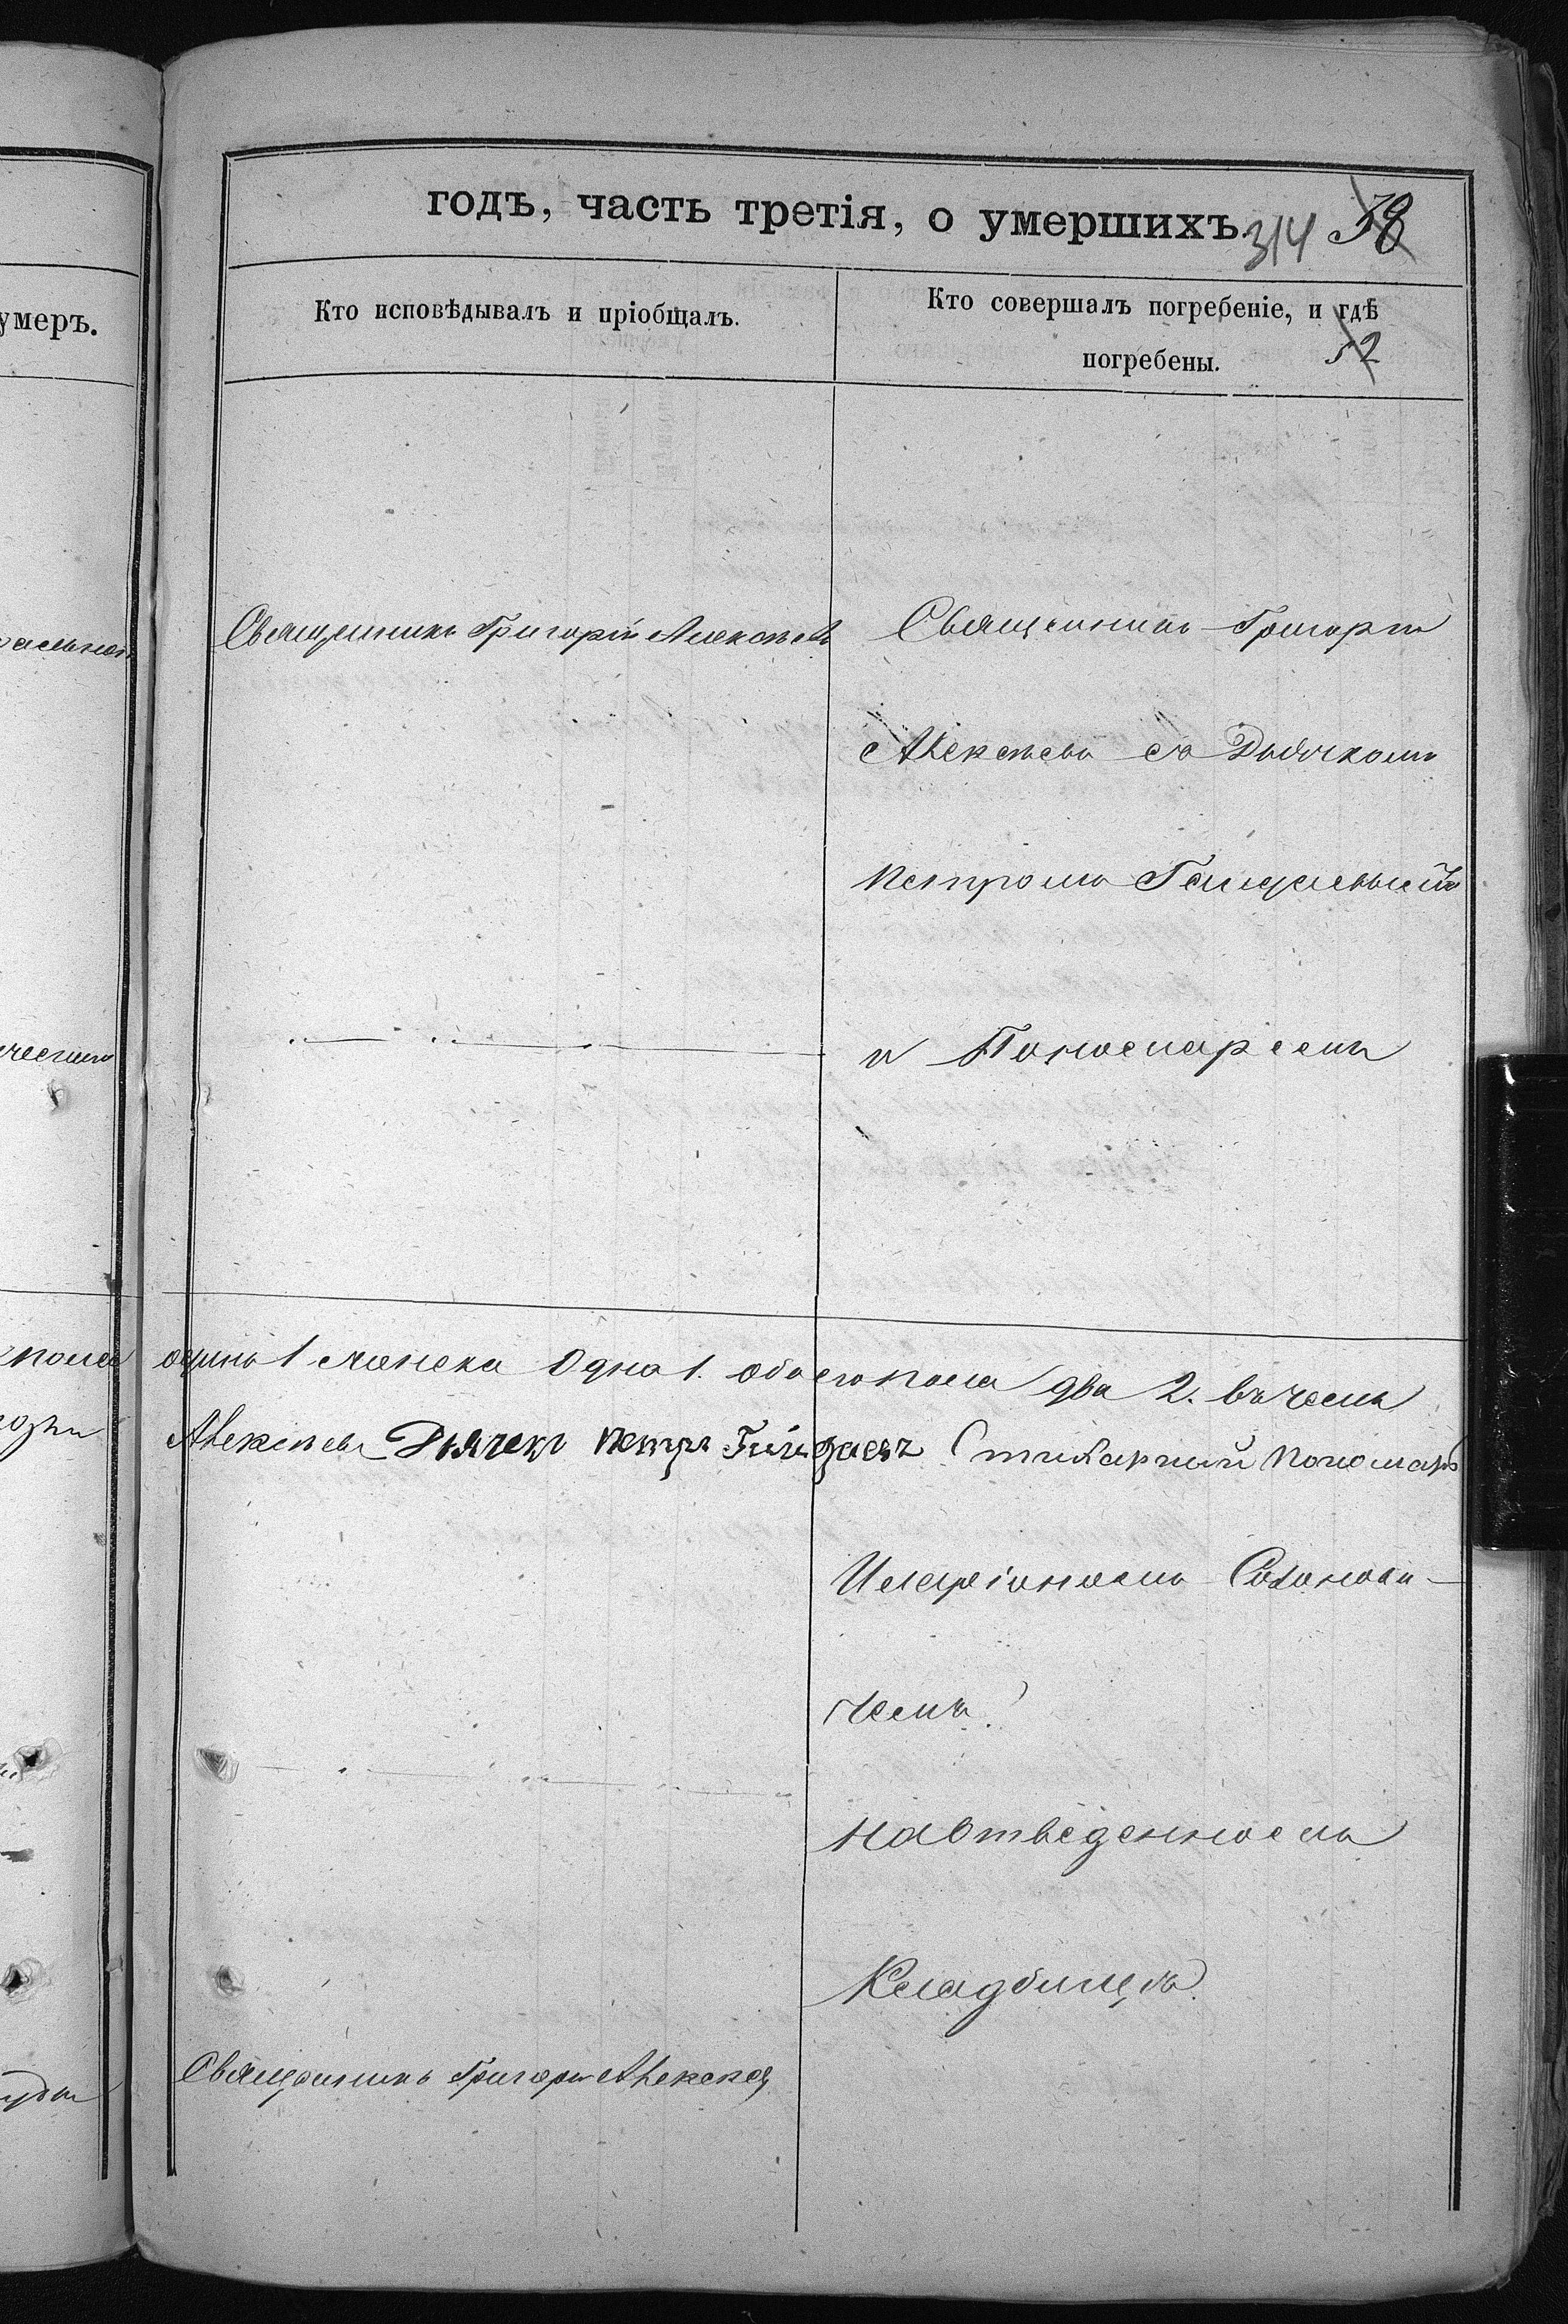 годъ, часть третія, о умершихъ. 314 38
умеръ.
Кто исповѣдывалъ и пріобщалъ.
Кто совершалъ погребеніе, и гдѣ
погребены. 52
Священникъ Григорій Алексѣевъ
Священникъ Григорій
Алексѣевъ съ Дьячкомъ
Петромъ
и Пономаремъ
одинъ 1 женска одна 1. обоего пола два 2. въ чемъ
Алексѣевъ Дьячекъ Петръ Стихарный Пономарь
Иларіономъ
чемъ.
на отведенномъ
Кладбищѣ.
Священникъ Григорій Алексѣев